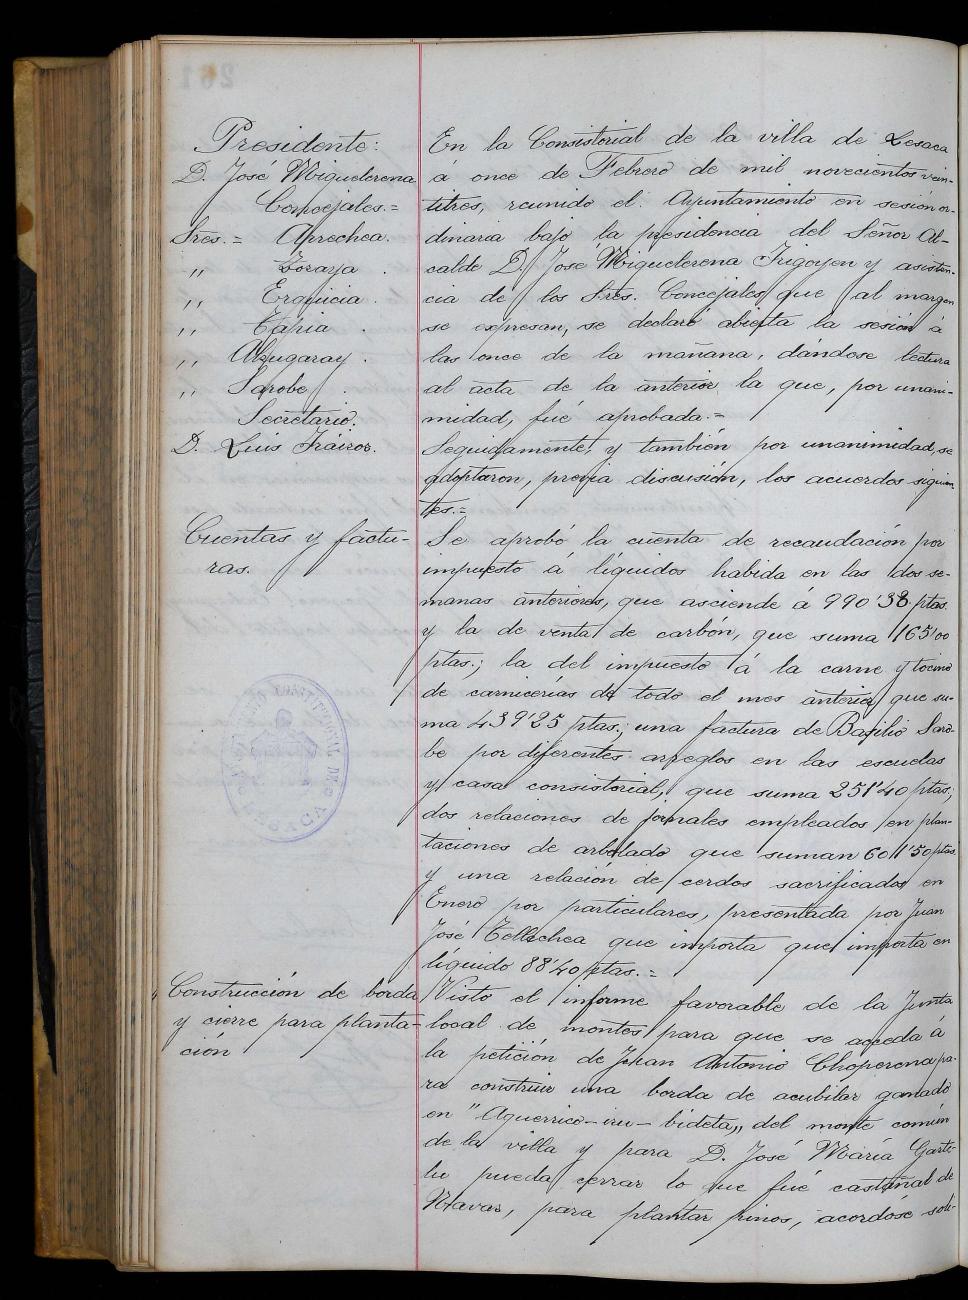 Presidente:
D. José Miguelerena
Concejales.=
Sres.= Aprechea.
,, Zoraya.
,, Erquicia.
,, Tapia.
,, Alzugaray.
,, Sarobe.
Secretario.
D. Luis Iráizoz.
En la Consistorial de la villa de Lesaca
á once de Febrero de mil novecientos vein-
titres, reunido el Ayuntamiento en sesión or-
dinaria bajo la presidencia del Señor Al-
calde D. José Miguelerena Irigoyen y asisten-
cia de los Sres. Concejales que al margen
se expresan, se declaró abierta la sesión á
las once de la mañana, dándose lectura
al acta de la anterior la que, por unani-
midad, fué aprobada.=
Seguidamente, y también por unanimidad, se
adoptaron, previa discusión, los acuerdos siguien-
tes.=
Cuentas y factu-
ras.
Se aprobó la cuenta de recaudación por
impuesto á líquidos habida en las dos se-
manas anteriores, que asciende á 990'38 ptas.
y la de venta de carbón, que suma 165'00
ptas.; la del impuesto á la carne y tocino
de carnicerías de todo el mes anterior que su-
ma 439'25 ptas.; una factura de Basilio Saro-
be por diferentes arreglos en las escuelas
y casa consistorial, que suma 251'40 ptas.;
dos relaciones de jornales empleados en plan-
taciones de arbolado que suman 601'50 ptas.
y una relación de cerdos sacrificados en
Enero por particulares, presentada por Juan
José Tellechea que importa que importa en
líquido 88'40 ptas.=
AYUNTAMIENTO CONSTITUCIONAL DE LESACA
Construcción de borda
y cierre para planta-
ción
Visto el informe favorable de la Junta
local de montes para que se acceda á
la petición de Juan Antonio Choperena pa-
ra construir una borda de acubilar ganado
en "Aguerrico-iru-bideta,, del monte común
de la villa y para D. José María Garti-
lu pueda cerrar lo que fué castañal de
Navar, para plantar pinos, acordóse soli-